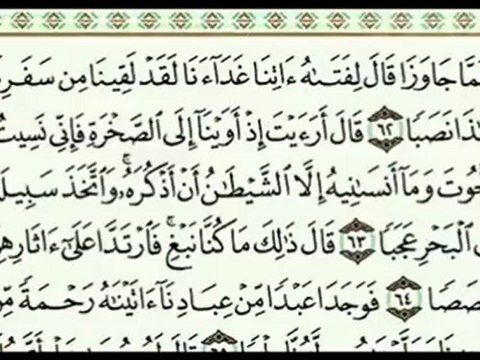 مَّا جَاوَزَا قَالَ لِفَتَىٰهُ ءَاتِنَا غَدَآءَنَا لَقَدْ لَقِينَا مِن سَفَرِ
ذَا نَصَبًا ٦٢ قَالَ أَرَءَيْتَ إِذْ أَوَيْنَآ إِلَى ٱلصَّخْرَةِ فَإِنِّى نَسِيتُ
حُوتَ وَمَآ أَنسَىٰنِيهُ إِلَّا ٱلشَّيْطَٰنُ أَنْ أَذْكُرَهُۥۚ وَٱتَّخَذَ سَبِيلَ
ى ٱلْبَحْرِ عَجَبًا ٦٣ قَالَ ذَٰلِكَ مَا كُنَّا نَبْغِۚ فَٱرْتَدَّا عَلَىٰٓ ءَاثَارِهِ
صَصًا ٦٤ فَوَجَدَا عَبْدًا مِّنْ عِبَادِنَآ ءَاتَيْنَٰهُ رَحْمَةً مِّنْ